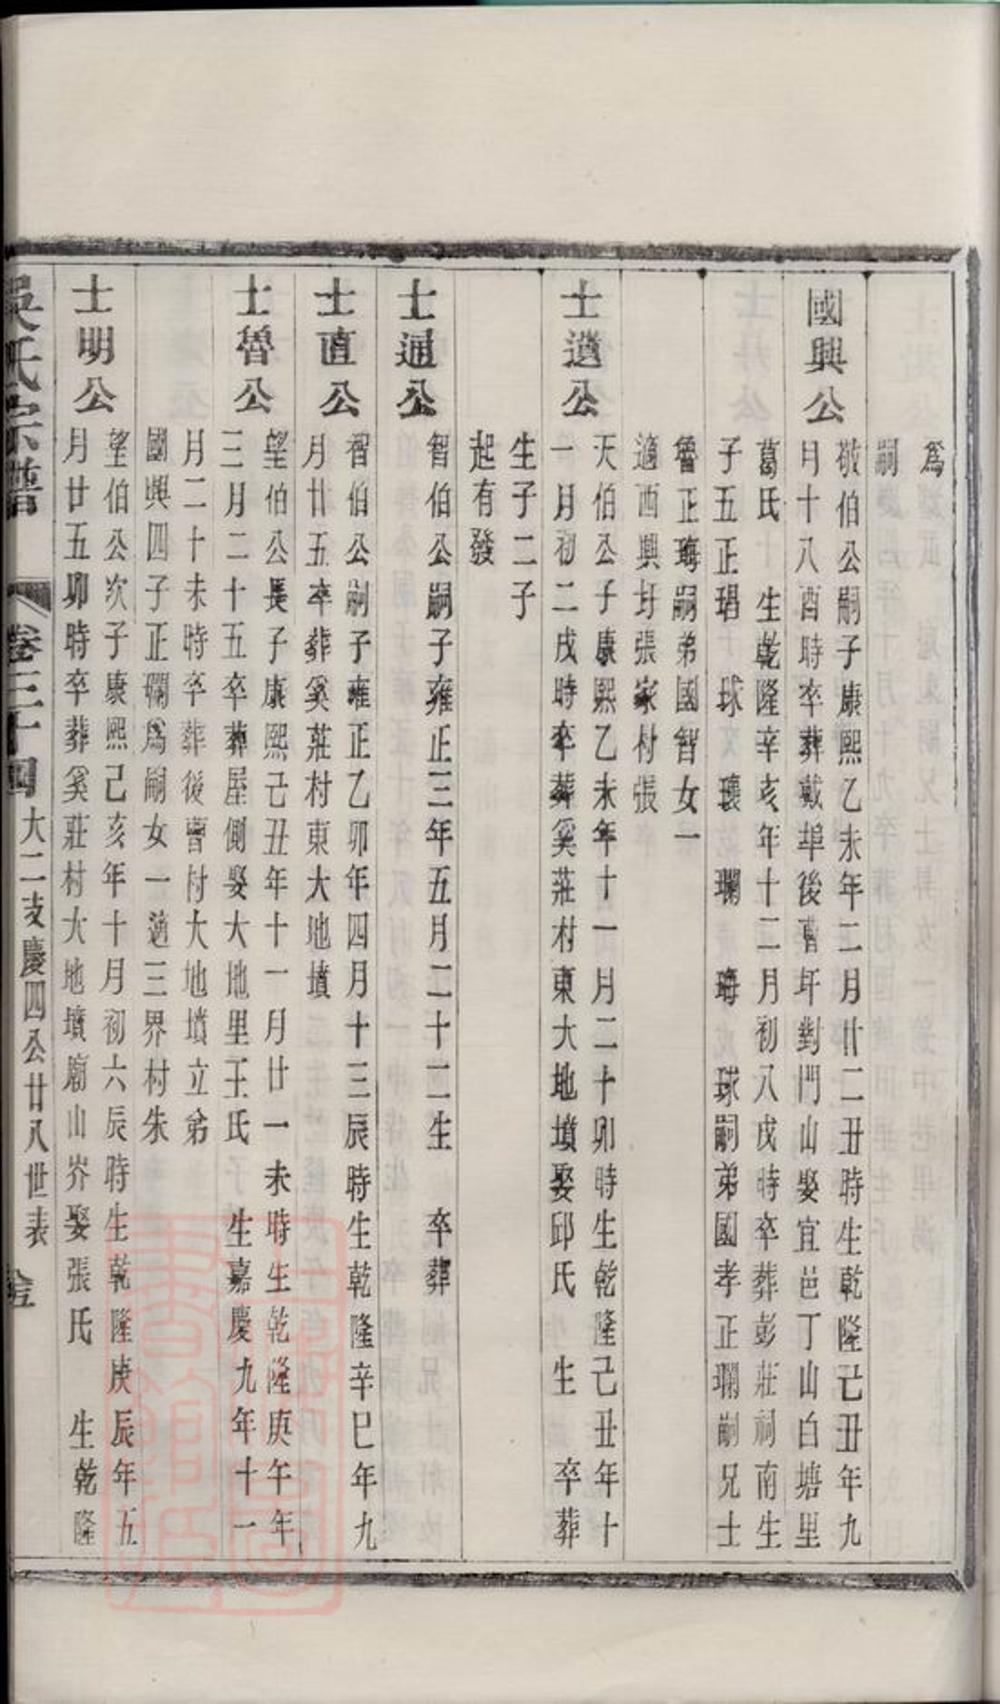 爲
嗣
國興公
敬伯公嗣子康熙乙未年二月廿二丑時生乾隆己丑年九
月十八酉時卒葬戴埠後曹圩對門山娶宜邑丁山白塘里
葛氏　生乾隆辛亥年十二月初八戌時卒葬彭莊祠南生
子五正琩　球　瓌　瓓　㻉　球嗣弟國孝正瓓嗣兄士
魯正㻉嗣弟國智女一
適西興圩張家村張
士邁公
天伯公子康熙乙未年十一月二十卯時生乾隆己丑年十
一月初二戌時卒葬奚莊村東大地墳娶邱氏　生　卒葬
生子二子
起有發
士通公
智伯公嗣子雍正三年五月二十二生　卒葬
士直公
智伯公嗣子雍正乙卯年四月十三辰時生乾隆辛巳年九
月廿五卒葬奚莊村東大地墳
士魯公
望伯公長子康熙己丑年十一月廿一未時生乾隆庚午年
三月二十五卒葬屋側娶大地里王氏　生嘉慶九年十一
月二十未時卒葬後曹村大地墳立弟
國興四子正瓓爲嗣女一適三界村朱
士明公
望伯公次子康熙己亥年十月初六辰時生乾隆庚辰年五
月廿五卯時卒葬奚莊村大地墳廟山岕娶張氏　生乾隆
吳氏宗譜　卷三十四　大二支慶四公廿八世表